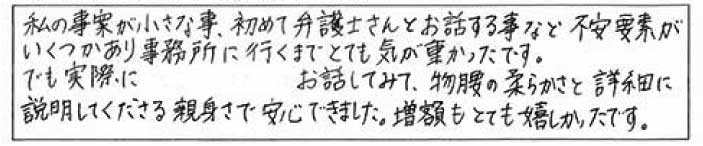 私の事案が小さな事、初めて弁護士さんとお話する事など不安要素が
いくつかあり事務所に行くまでとても気が重かったです。
でも実際に お話してみて、物腰の柔らかさと詳細に
説明してくださる親身さで安心できました。増額もとても嬉しかったです。